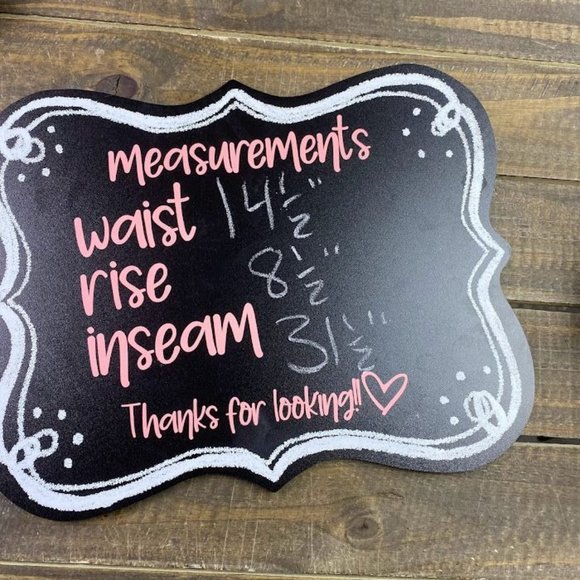 measurements
waist 14 1/2"
rise 8 1/2"
inseam 31 1/2"
Thanks for looking!!